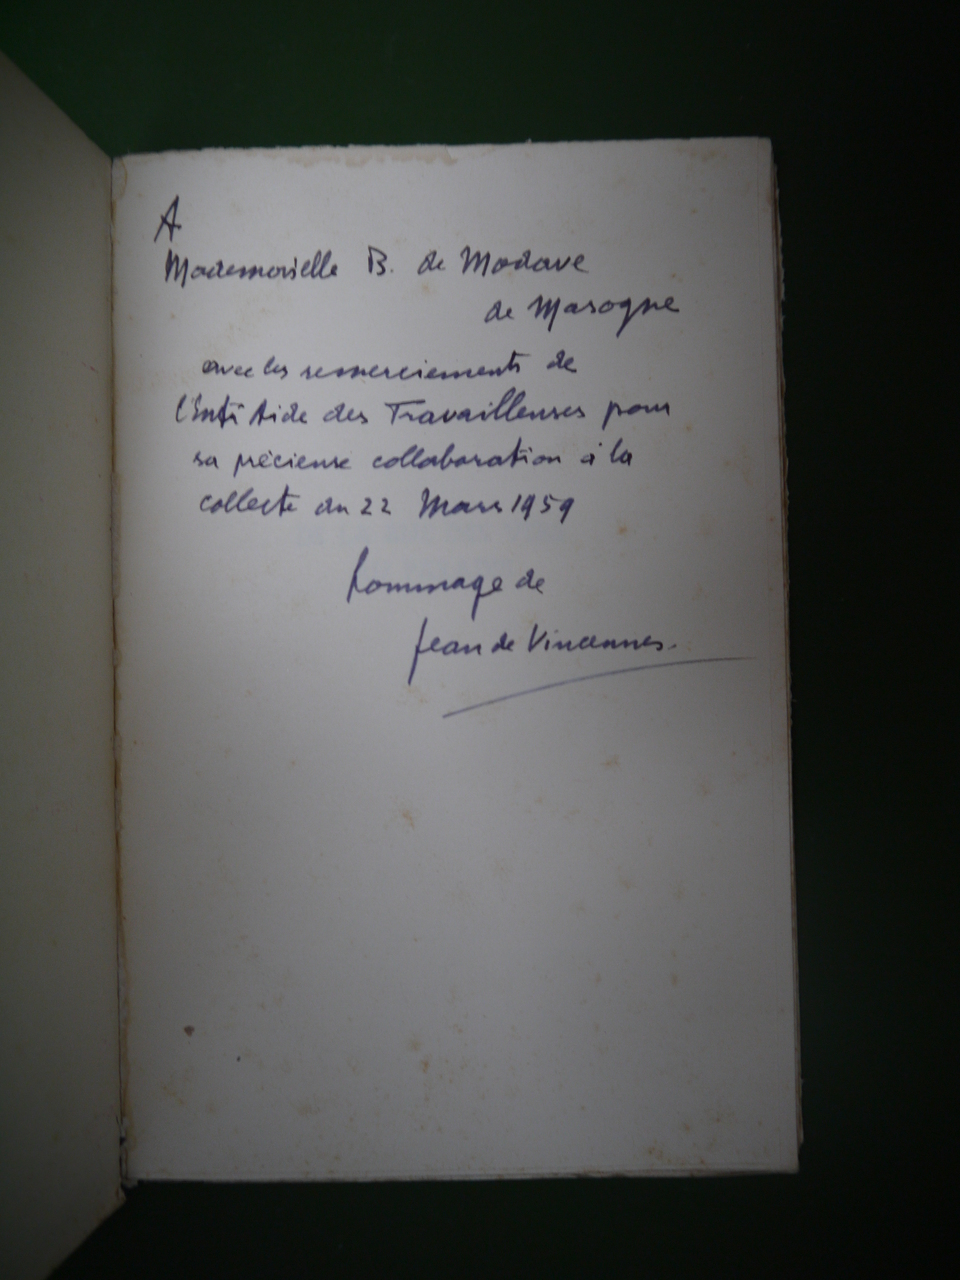 A
Mademoiselle B. de Modave
de Masogne
avec les remerciements de
Aide des Travailleuses pour
sa précieuse collaboration à la
collecte du 22 Mars 1959
hommage de
Jean de Vincennes.